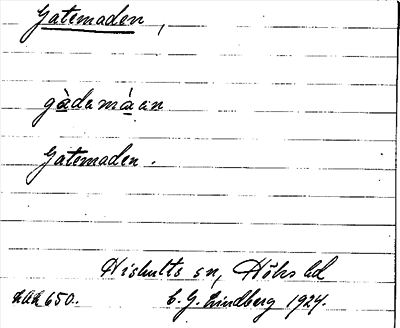 Gatemaden,
gàdamàan
Gatemaden.
Hishults sn, Höks hd
HAH 650. C. G. Lindberg 1924.